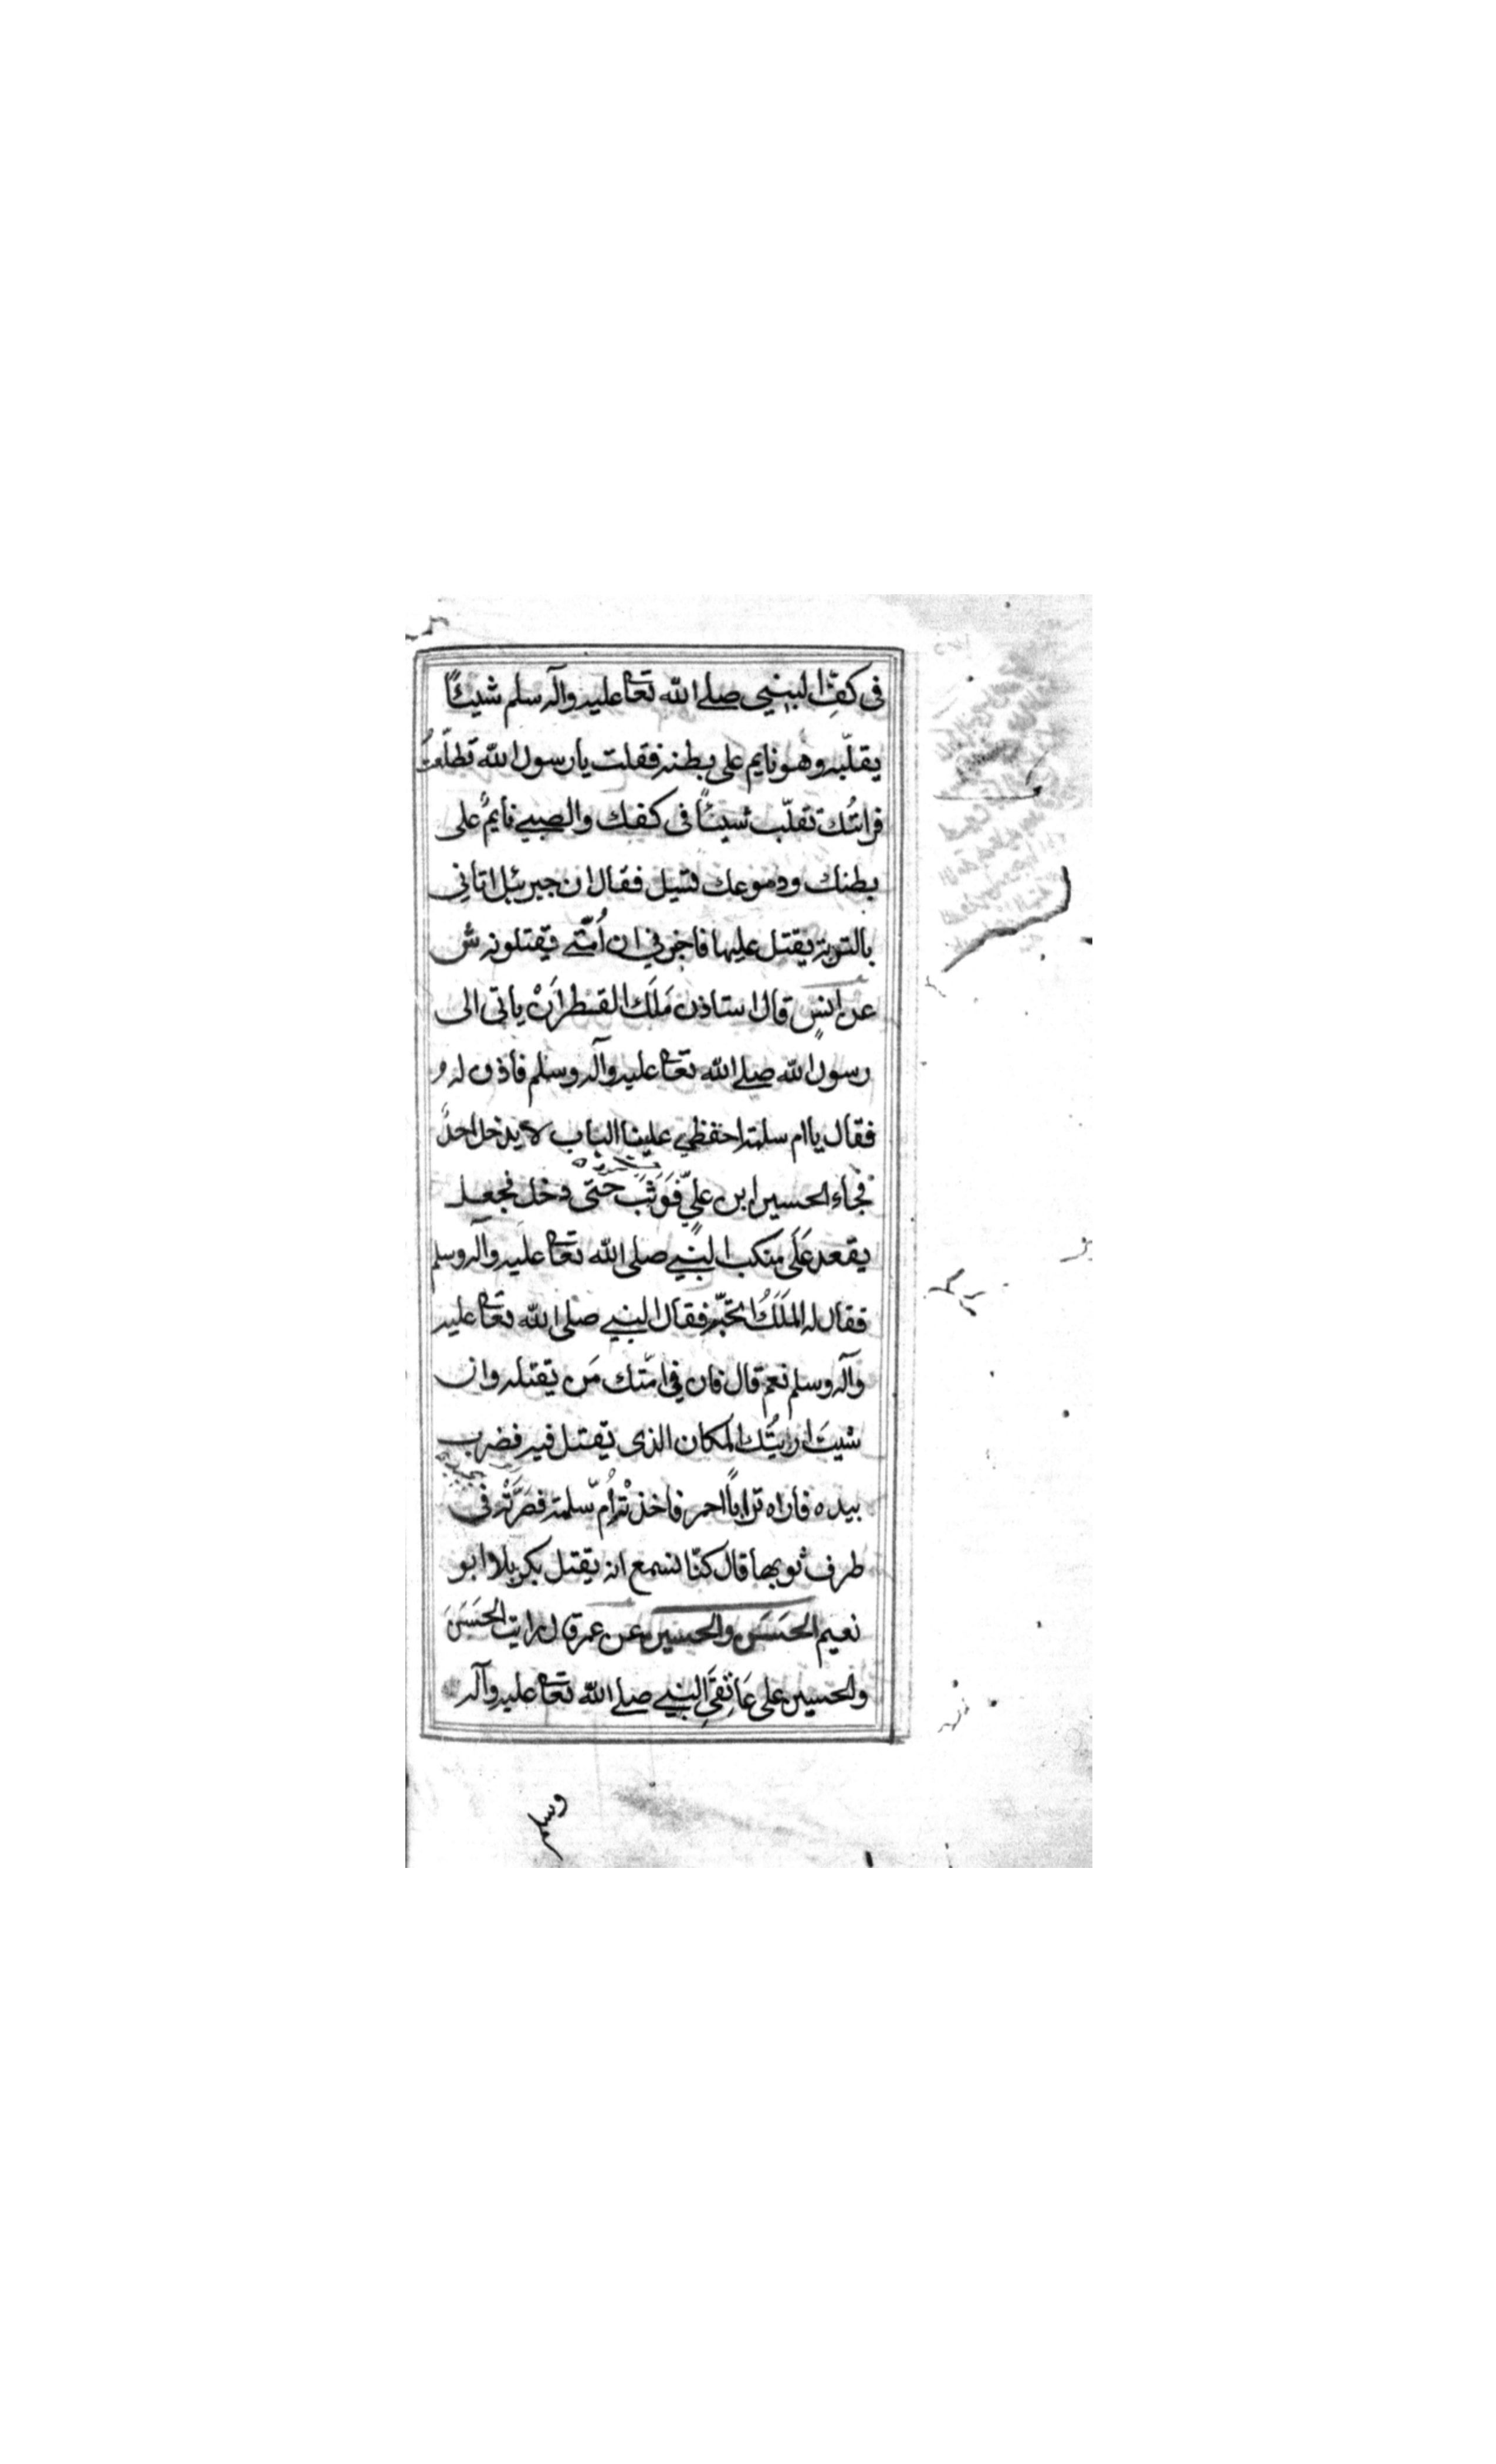 فى كفِّ النبيي صلے الله تعا عليه وآله سلم شيئًا
يقلّبه وهو نايم على بطنه فقلت يا رسول الله تطلّعتُ
فرائتُك تقلّب شيئًا فى كفك والصبے نايمٌ على
بطنك ودموعك تسيل فقال ان جبرئيل اتاني
بالتربة يقتل عليها فاخبرني ان اُمّتے يقتلونه ش
عن انسٍ قال استاذن مَلَك القطر اَنْ ياتى الى
رسول الله صلے الله تعا عليه وآله وسلم فاذن له
فقال يا ام سلمة احفظي علينا الباب لا يدخل احدٌ
فجاء الحسين ابن عليّ فَوَثَبَ حتّى دخل فجعل
يقعد عَلَى منكب النبيے صلى الله تعا عليه وآله وسلم
فقال له المَلَكُ اتحبّه فقال النبيے صلى الله تعا عليه
وآله وسلم نعم قال فان في امّتك مَن يقتله وان
شيتَ اريتُك المكان الذى يقتل فيه فضرب
بيده فاراه ترابًا احمر فاخذتْه اُمّ سلمة فصَرَّتْه فى
طرف ثوبها قال كنّا نسمع انه يقتل بكربلا ابو
نعيم الحَسَن والحسين عن عمر قال رايت الحَسَنَ
والحسين على عَاتِقَيِ النبيے صلے الله تعا عليه وآله
وسلم